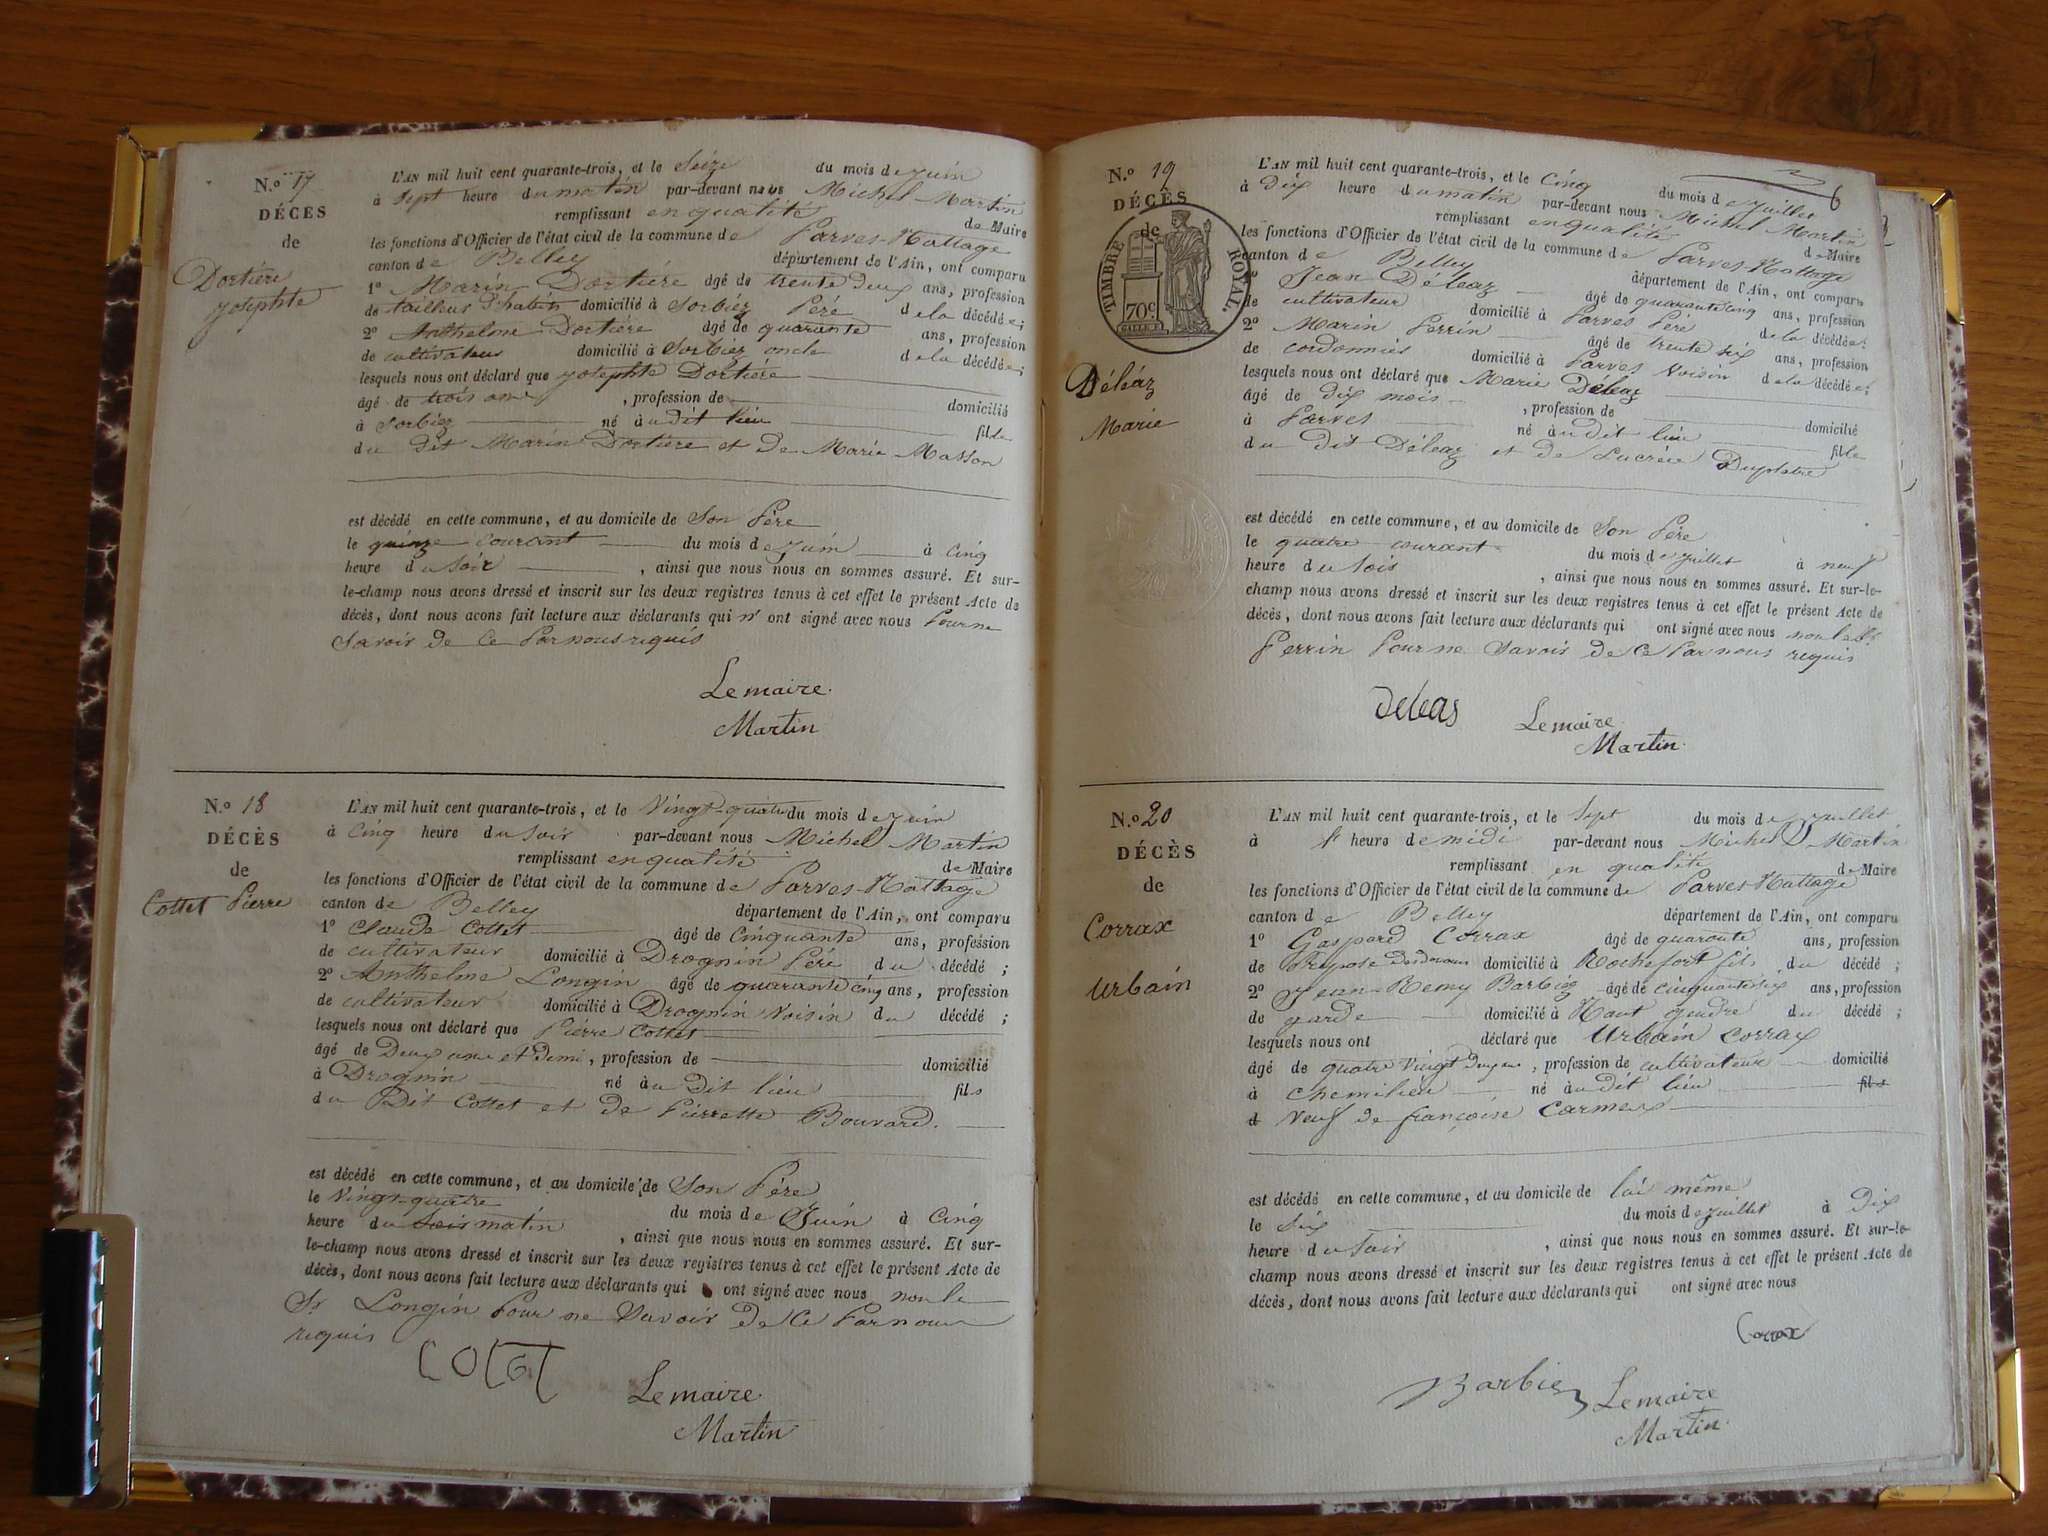 N.o 17
DÉCES
de
Dortière
josephte
L'AN mil huit cent quarante-trois, et le Seize du mois de juin
à Sept heure du matin par-devant nous Michel Martin
remplissant en qualité de Maire
les fonctions d'Officier de l'état civil de la commune de Parves-Nattage
canton de Belley département de l'Ain, ont comparu
1o Marin Dortière âgé de trente deux ans, profession
de tailleur d'habits domicilié à Sorbiéz Péré de la décédée;
2o Anthelme Dortière âgé de quarante ans, profession
de cultivateur domicilié à Sorbiez oncle de la décédée;
lesquels nous ont déclaré que josephte Dortière
âgé de trois ans, profession de domicilié
à Sorbiéz né au dit lieu fille
du dit Marin Dortière et de Marie Masson
est décédé en cette commune, et au domicile de Son Père
le quinze courant du mois de juin à Cinq
heure du Soir, ainsi que nous nous en sommes assuré. Et sur-
le-champ nous avons dressé et inscrit sur les deux registres tenus à cet effet le présent Acte de
décès, dont nous avons fait lecture aux déclarants qui n' ont signé avec nous Pour ne
Savoir de Ce Par nous requis
Lemaire
Martin
N.o 18
DÉCÈS
de
Cottet Pierre
L'AN mil huit cent quarante-trois, et le Vingt-quatre du mois de juin
à Cinq heure du Soir par-devant nous Michel Martin
remplissant en qualité de Maire
les fonctions d'Officier de l'état civil de la commune de Parves-Nattage
canton de Belley département de l'Ain, ont comparu
1o Claude Cottet âgé de Cinquante ans, profession
de cultivateur domicilié à Drognin Péré du décédé;
2o Anthelme Longin âgé de quarante cinq ans, profession
de cultivateur domicilié à Drognin Voisin du décédé;
lesquels nous ont déclaré que Pierre Cottet
âgé de Deux ans et demi, profession de domicilié
à Drognin né au Dit lieu fils
du Dit Cottet et de Pierrette Bouvard.
est décédé en cette commune, et au domicile de Son Père
le Vingt-quatre du mois de Juin à Cinq
heure du Soir matin, ainsi que nous nous en sommes assuré. Et sur-
le-champ nous avons dressé et inscrit sur les deux registres tenus à cet effet le présent Acte de
décès, dont nous avons fait lecture aux déclarants qui ont signé avec nous non le
Sr Longin Pour ne Savoir de Ce Par nous
requis
Lemaire
Martin
N.o 19
DÉCÈS
de
TIMBRE ROYAL.
70c
Déléaz
Marie
L'AN mil huit cent quarante-trois, et le Cinq du mois de juillet
à dix heure du matin par-devant nous Michel Martin
remplissant en qualité de Maire
les fonctions d'Officier de l'état civil de la commune de Parves-Nattage
canton de Belley département de l'Ain, ont comparu
Jean Déléaz âgé de quarante cinq ans, profession
de cultivateur domicilié à Parves Péré de la décédée;
2o Marin Perrin âgé de trente six ans, profession
de cordonnier domicilié à Parves Voisin de la décédée;
lesquels nous ont déclaré que Marie Déléaz
âgé de dix mois, profession de domicilié
à Parves né au dit lieu fille
du dit Déléaz et de Lucrèce Duplatre
est décédé en cette commune, et au domicile de Son Père
le quatre courant du mois de juillet à neuf
heure du Soir, ainsi que nous nous en sommes assuré. Et sur-le-
champ nous avons dressé et inscrit sur les deux registres tenus à cet effet le présent Acte de
décès, dont nous avons fait lecture aux déclarants qui ont signé avec nous non le Sr
Perrin Pour ne Savoir de Ce Par nous requis
déléas
Lemaire
Martin.
N.o 20
DÉCÈS
de
Corrax
Urbain
L'AN mil huit cent quarante-trois, et le Sept du mois de juillet
à l' heure de midi par-devant nous Michel Martin
remplissant en qualité de Maire
les fonctions d'Officier de l'état civil de la commune de Parves-Nattage
canton de Belley département de l'Ain, ont comparu
1o Gaspard Corrax âgé de quarante ans, profession
de Préposé Des douanes domicilié à Rochefort fils du décédé;
2o Jean-Remy Barbiez âgé de cinquante six ans, profession
de garde domicilié à Nant gendre du décédé;
lesquels nous ont déclaré que Urbain Corrax
âgé de quatre Vingt Deux ans, profession de cultivateur domicilié
à Chemilieu né au dit lieu fils
d Veuf de françoise Carmex
est décédé en cette commune, et au domicile de lui même
le Six du mois de juillet à Dix
heure du Soir, ainsi que nous nous en sommes assuré. Et sur-le-
champ nous avons dressé et inscrit sur les deux registres tenus à cet effet le présent Acte de
décès, dont nous avons fait lecture aux déclarants qui ont signé avec nous
Corrax
Barbiez
Lemaire
Martin